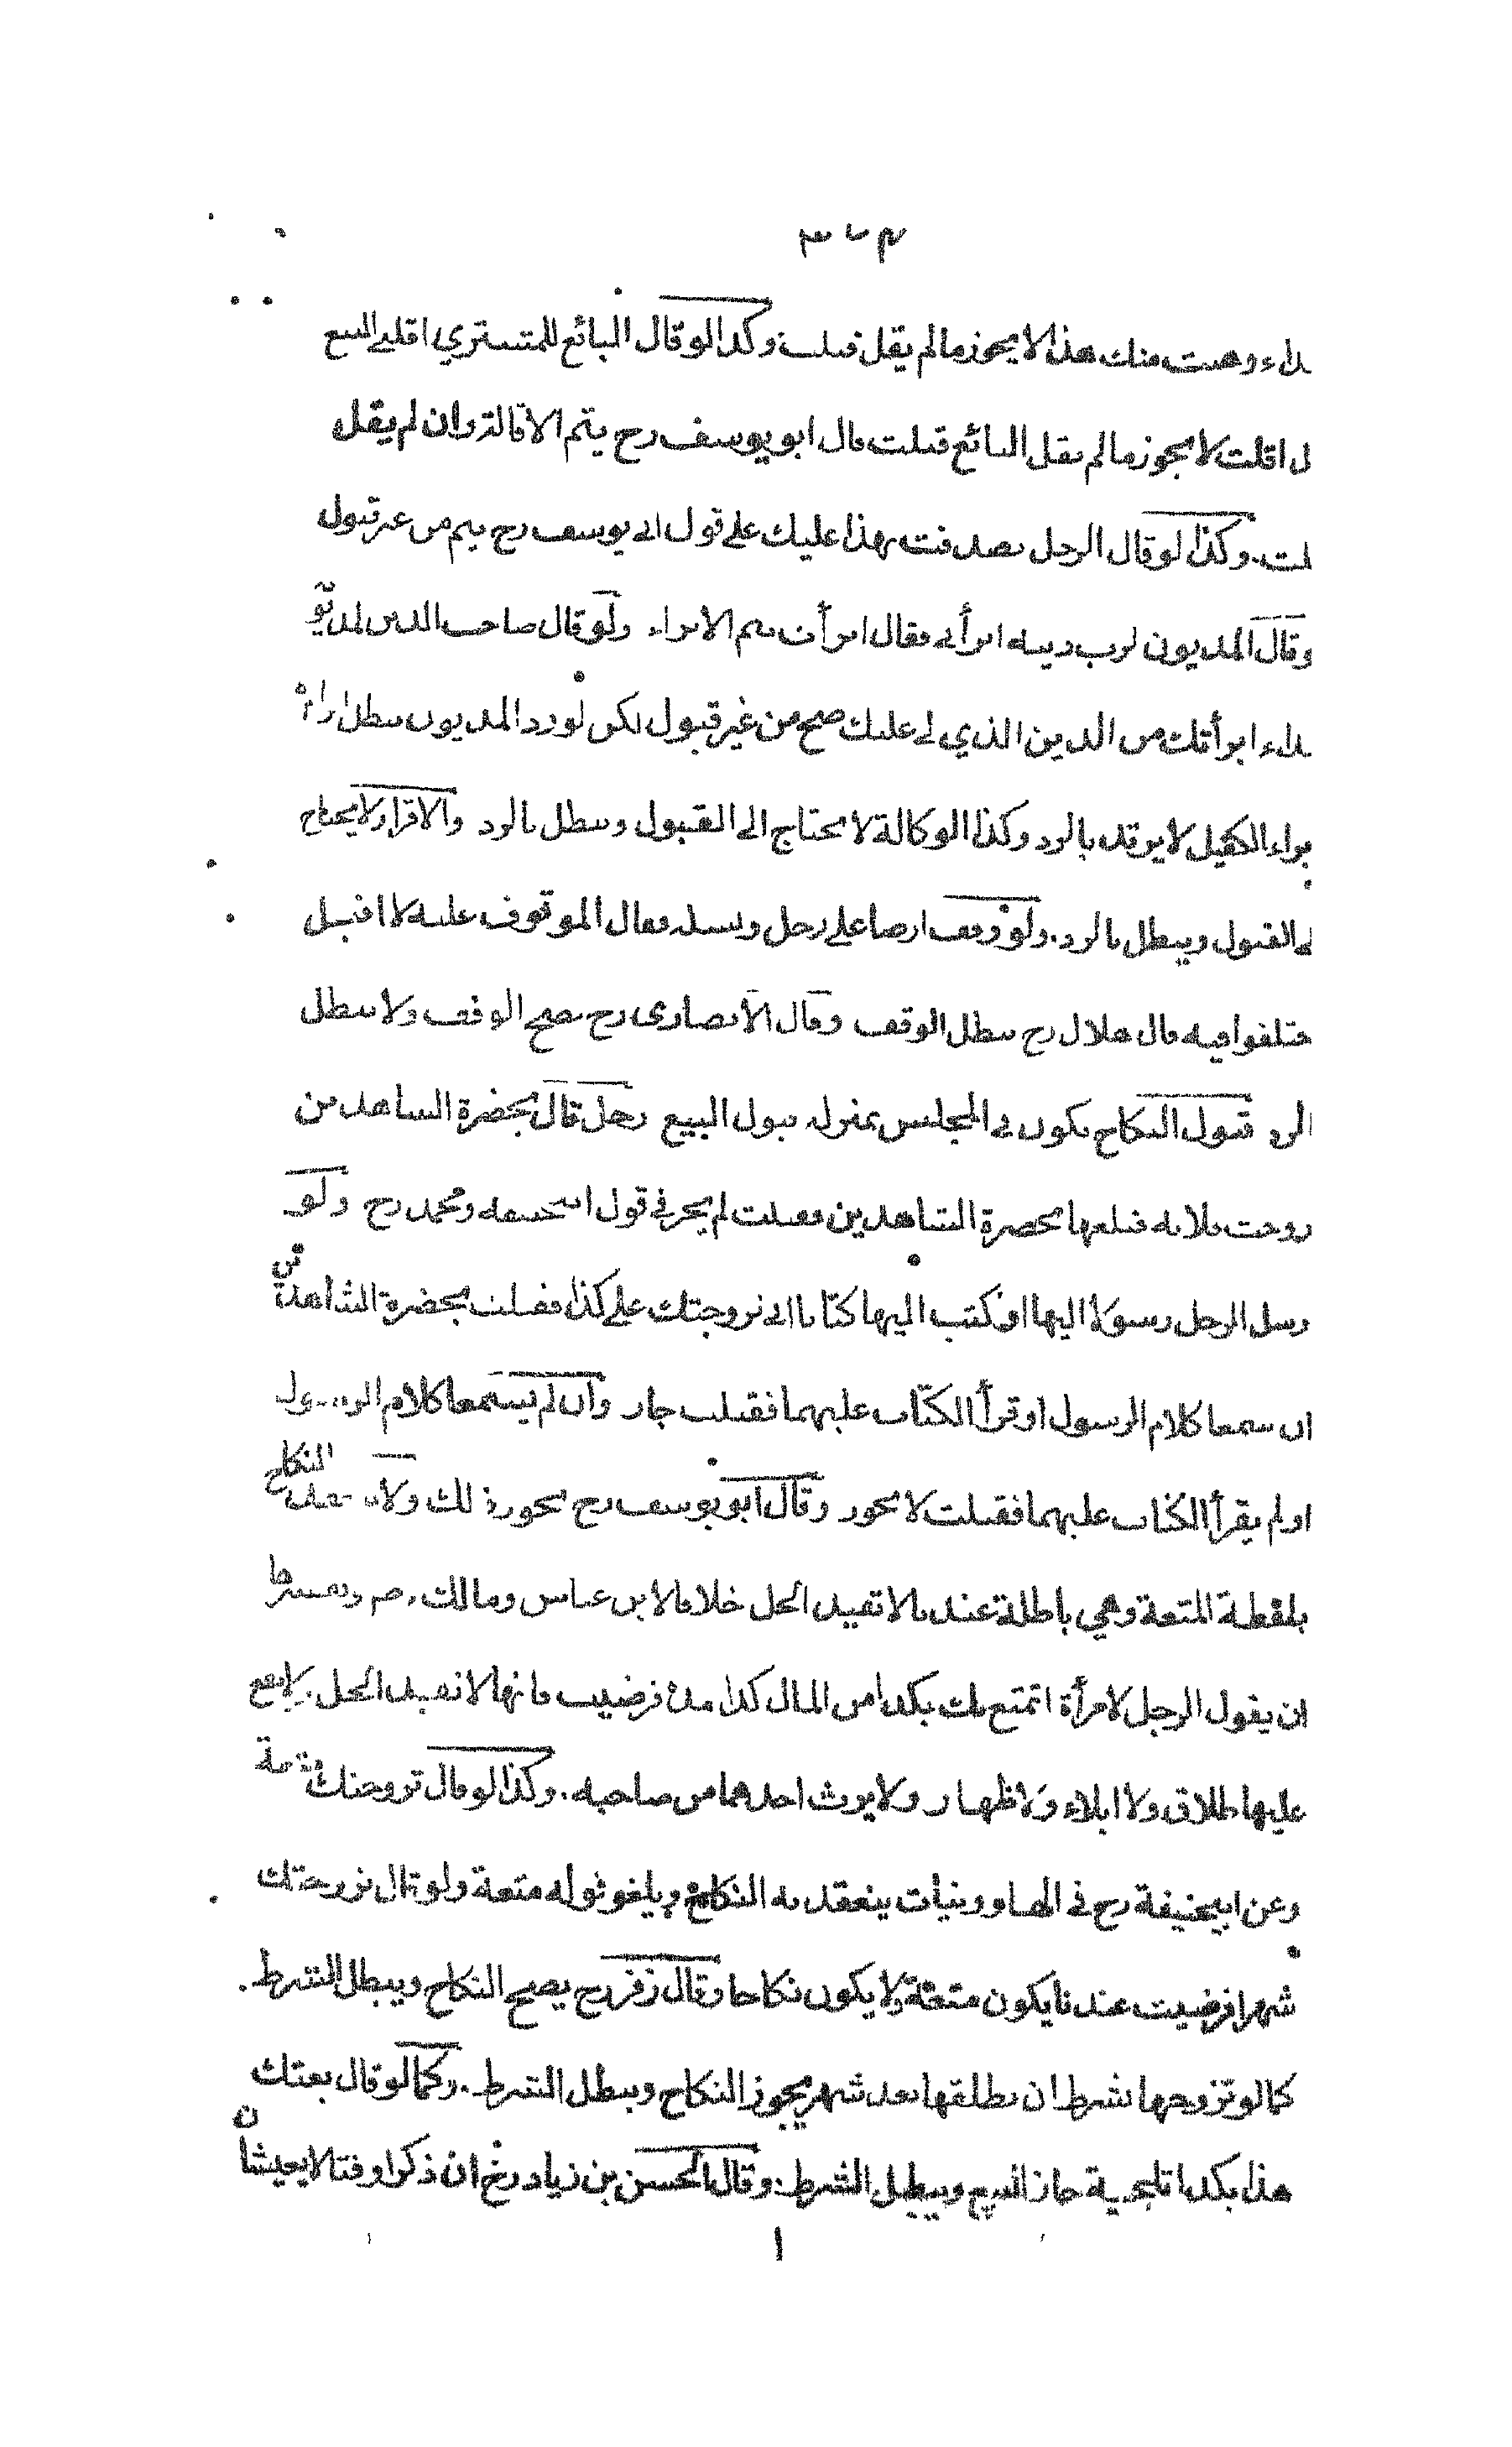 ٣٠٣
وهبت منك هذا لا يجوز ما لم يقل قبلت وكذا لو قال البائع للمشتري اقلني البيع
ل اقلت لا يجوز ما لم يقل البائع قبلت قال ابو يوسف رح يتم الاقالة وان لم يقل
لت. وكذا لو قال الرجل تصدقت بهذا عليك على قول ابي يوسف رح يتم من غير قبول
وقال المديون لرب دينه ابرأني فقال ابرأت يتم الابراء ولو قال صاحب الدين لمديو
ابرأتك من الدين الذي لي عليك صح من غير قبول لكن لو رد المديون يبطل
براء الكفيل لا يرتد بالرد وكذا الوكالة لا تحتاج الى القبول وتبطل بالرد والاقرار لا يحتاج
لى القبول ويبطل بالرد. ولو وقف ارضا على رجل ونسله فقال الموقوف عليه لا اقبل
ختلفوا فيه قال هلال رح يبطل الوقف وقال الانصارى رح يصح الوقف ولا يبطل
الرد قبول النكاح يكون في المجلس بمنزلة قبول البيع رجل قال بحضرة الشاهدين
زوجت فلانه فبلغها بحضرة الشاهدين فقبلت لم يجز في قول ابيحنيفه ومحمد رح ولو
رسل الرجل رسولا اليها او كتب اليها كتابا اني تزوجتك على كذا فقبلت بحضرة الشاهدين
ان سمعا كلام الرسول او قرأ الكتاب عليهما فقبلت جاز وان لم يسمعا كلام الرسول
او لم يقرأ الكتاب عليهما فقبلت لا يجوز وقال ابو يوسف رح يجوز ذلك ولا ينعقد النكاح
بلفظة المتعة وهي باطلة عندنا لا تفيد الحل خلافا لابن عباس ومالك رضى وتفسيرها
ان يقول الرجل لامرأة اتمتع بك بكذا من المال كذا مدة فرضيت فانها لا تفيد الحل. لا يقع
عليها طلاق ولا ايلاء ولا ظهار ولا يرث احدهما من صاحبه. وكذا لو قال تزوجتك متعة
وعن ابيحنيفة رح في الهاوونيات ينعقد به النكاح ويلغو قوله متعة ولو قال تزوجتك
شهرا فرضيت عندنا يكون متعة ولا يكون نكاحا وقال زفر رح يصح النكاح ويبطل الشرط.
كما لو تزوجها بشرط ان يطلقها بعد شهر يجوز النكاح ويبطل الشرط. وكما لو قال بعتك
هذا بكذا تلجية جاز البيع ويبطل الشرط. وقال الحسن بن زياد رح ان ذكرا وقتا لا يعيشان